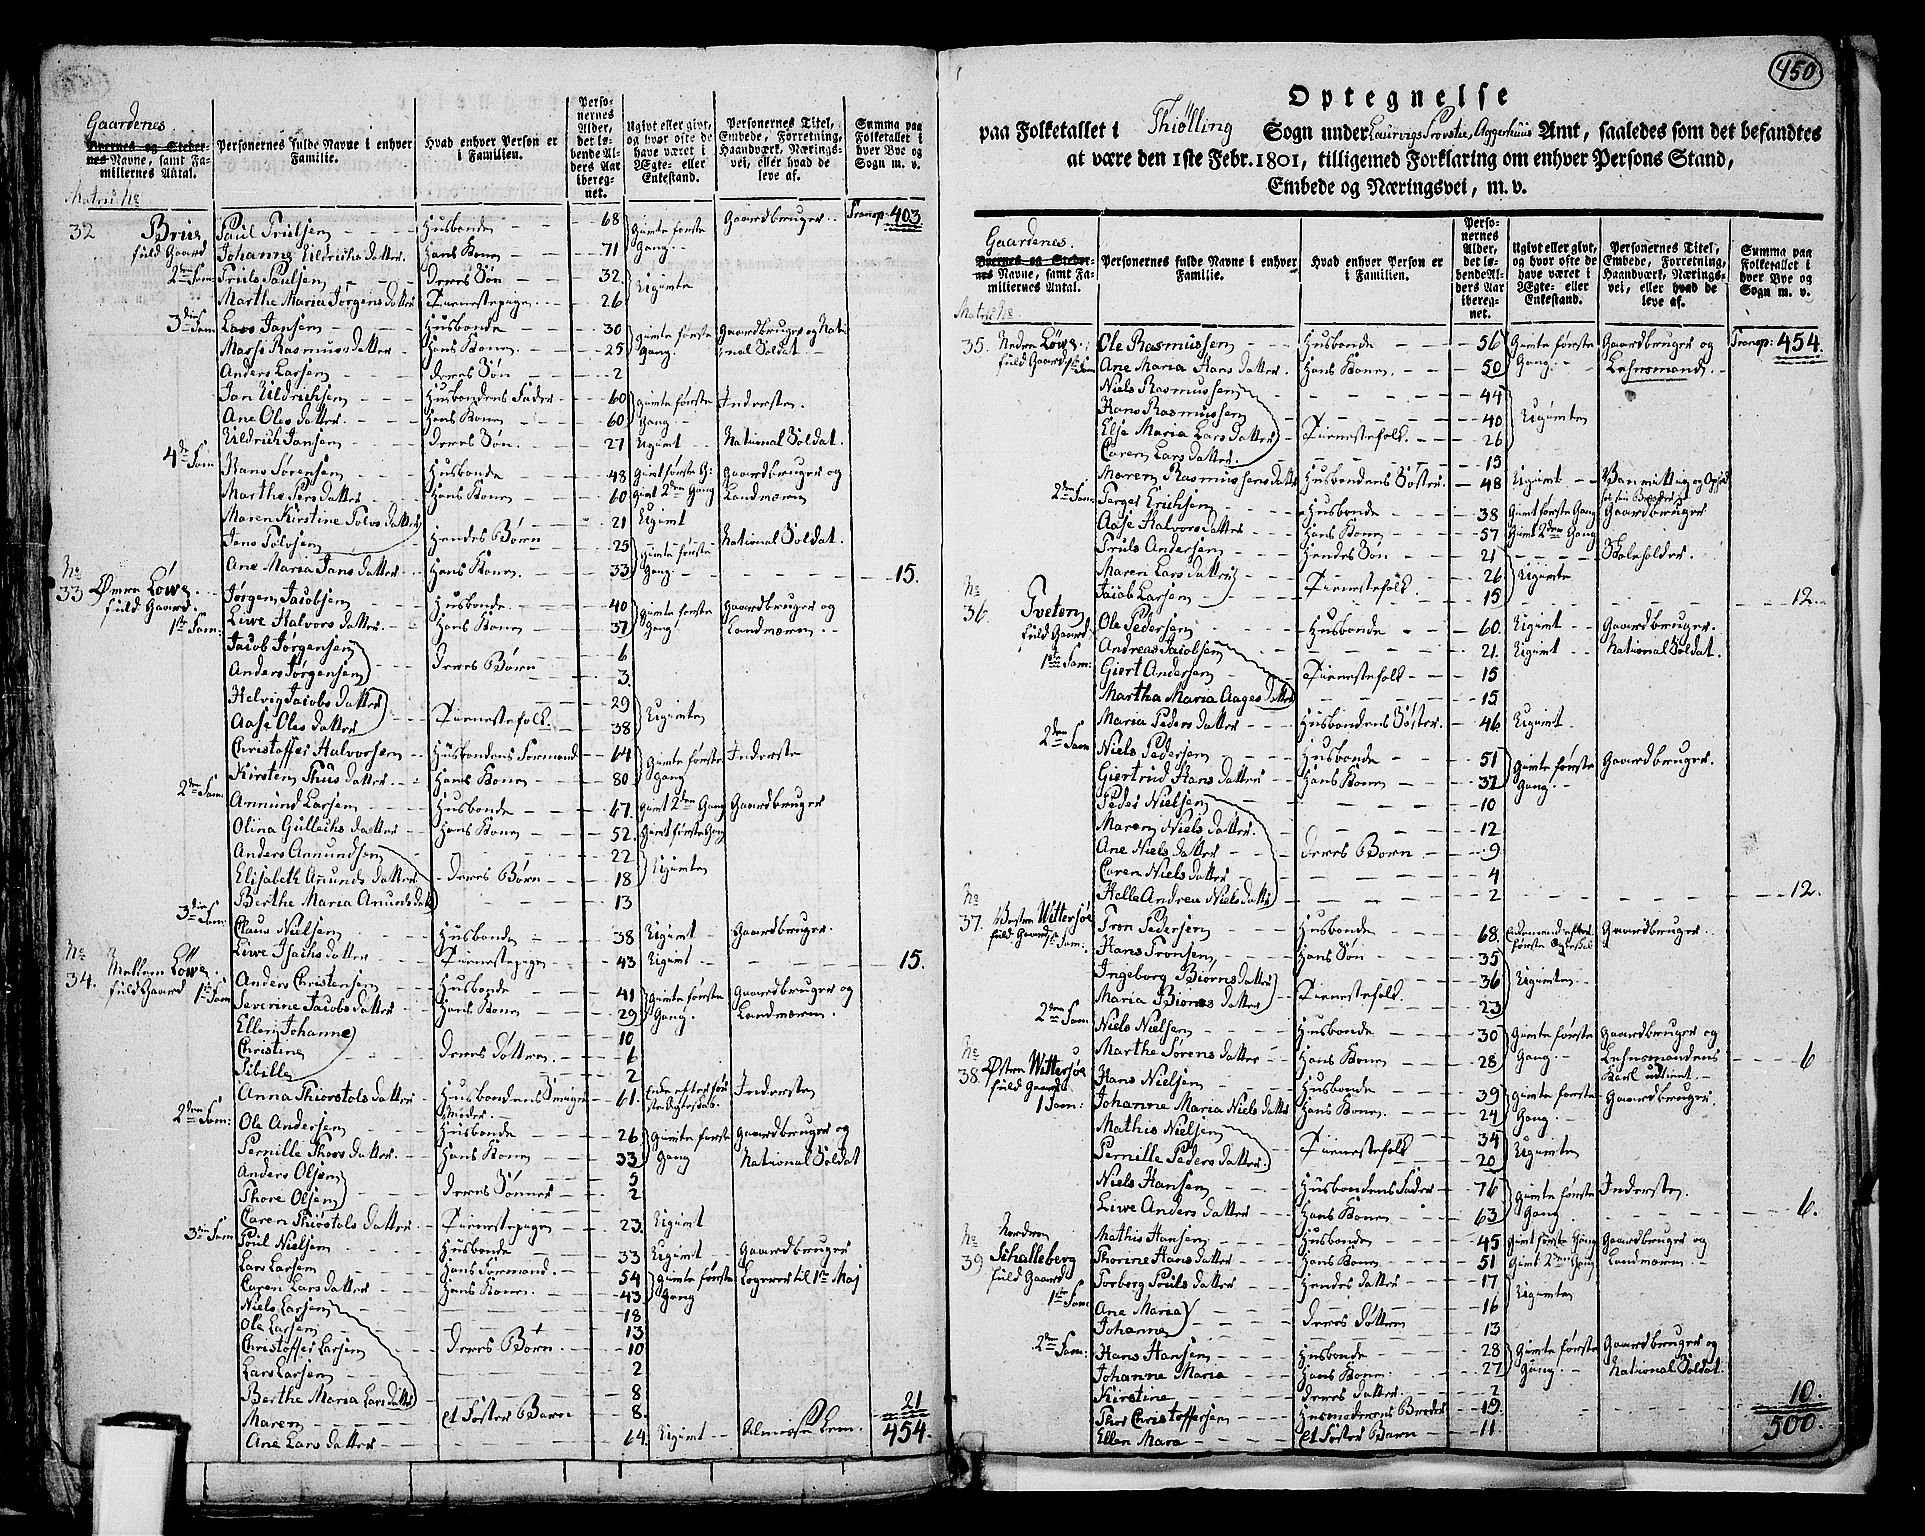 Gaardenes
Byernes og Steder-
nes Navne, samt Fa-
miliernes Antal.
Matrik No
Personernes fulde Navne i enhver
Familie.
Hvad enhver Person er
i Familien.
Perso-
nernes
Alder,
det lø-
bende Al-
ders Aar
iberegnet.
Ugivt eller givt,
og hvor ofte de
have været i
Ægte- eller
Enkestand.
Personernes Titel,
Embede, Forretning,
Haandværk, Nærings-
vei, eller hvad de
leve af.
Summa paa
Folketallet i
hver Bye og
Sogn m. v.
32 Brue Poul Trulsen Husbonde 68 Gifte første Gaardbruger Transp: 403
fuld Gaard Johanne Uldrichs datter Hans Kone 71 Gang
2den Fam Truls Poulsen Deres Søn 32 Ugifte
Marthe Maria Jørgens datter Tienestepigen 26
3die Fam Lars Jansen Husbonde 30 Gifte første Gaardbruger og Nati
Masse Rasmus datter Hans Kone 25 Gang onal Soldat
Anders Larsen Deres Søn 2
Jan Uldrichsen Husbondens Fader 60 Gifte første Inderster
Ane Oles datter Hans Kone 60 Gang
Uldrich Jansen Deres Søn 27 Ugift National Soldat
4de Fam Hans Sørensen Husbonde 48 Gift første G: Gaardbruger og
Marthe Pers datter Hans Kone 60 Gift 2den Gang Landværn
Maren Kirstine Tolvs datter 21 Ugift
Jens Tolvsen Hendes Børn 25 Gifte første National Soldat
Ane Maria Jans datter Hans Kone 33 Gang 15
No
33 Øvre Løwe Jørgen Jacobsen Husbonde 40 Gifte første Gaardbruger og
fuld Gaard Liwe Halvors datter Hans Kone 37 Gang Landværn
1ste Fam: Jacob Jørgensen 6
Anders Jørgensen Deres Børn 3
Helvig Jacobs datter 29
Aase Oles datter Tienestefolk 38 Ugifte
Christoffer Halvorsen Husbondens Formand 64 Gifte første Inderste
Kirsten Thus datter Hans Kone 80 Gang
2den Fam: Annund Larsen Husbonde 47 Gift 2den Gang Gaardbruger
Olina Gullechs datter Hans Kone 52 Gift første Gang
Anders Annundsen 22
Elisabeth Anunds datter Deres Børn 18 Ugifte
Berthe Maria Anunds datter 13
3die Fam: Claus Nielsen Husbonde 38 Ugift Gaardbruger
Liwe Isachs datter Tienestepige 43 Ugift 15
No
34 Mellem Løwe Anders Christensen Husbonde 41 Gifte første Gaardbruger og
fuld Gaard 1ste Fam Severine Jacobs datter Hans Kone 29 Gang Landværn
Ellen Johanne 10
Christine Deres døttre 6
Sibille 2
Anna Thiorstols datter Husbondens Sviger 61 Enke efter før Indersten
Moder ste Ægteskab
2den Fam: Ole Andersen Husbonde 26 Gifte første Gaardbruger og
Pernille Thors datter Hans Kone 33 Gang National Soldat
Anders Olsen 5
Thore Olsen Deres Sønner 2
Caren Thiostols datter Tienestepigen 23 Ugift
3die Fam Poul Nielsen Husbonde 33 Ugift Gaardbruger
Lars Larsen Hans Formand 54 Gifte første Logerer til 1te Maj
Caren Lars datter Hans Kone 43 Gang
Niels Larsen 18
Ole Larsen 13
Christoffer Larsen Deres Børn 10
Lars Larsen 2
Berthe Maria Lars datter 8
Maren et Foster Barn 8 21
Ane Lars datter 64 Ugift Almisse Lem 454
450
Optegnelse
paa Folketallet i Thiølling Sogn under Laurvigs Provstie, Aggerhuus Amt, saaledes som det befandtes
at være den 1ste Febr. 1801, tilligemed Forklaring om enhver Persons Stand,
Embede og Næringsvei, m. v.
Gaardenes
Byernes og Steder-
nes Navne, samt Fa-
miliernes Antal.
Matrik No
Personernes fulde Navne i enhver
Familie.
Hvad enhver Person er
i Familien.
Perso-
nernes
Alder,
det lø-
bende Al-
ders Aar
iberegnet.
Ugivt eller givt,
og hvor ofte de
have været i
Ægte- eller
Enkestand.
Personernes Titel,
Embede, Forretning,
Haandværk, Nærings-
vei, eller hvad de
leve af.
Summa paa
Folketallet i
hver Bye og
Sogn m. v.
35 Nedre Løwe Ole Rasmussen Husbonde 56 Gifte første Gaardbruger og Transp: 454
fuld Gaard 1ste Fam Ane Maria Hans datter Hans Kone 50 Gang Lehnsmand
Niels Rasmussen 44
Hans Rasmussen 40 Ugifte
Else Maria Lars datter Tienestefolk 26
Caren Lars datter 15
Maren Rasmussens datter Husbondens Søster 48 Ugift
2den Fam: Torger Erichsen Husbonde 38 Gift første Gang Gaardbruger
Aase Halvors datter Hans Kone 57 Gift 2den Gang
Truls Andersen Hendes Søn 21 Skoleholder
Maren Lars datter 26 Ugifte
Jacob Larsen Tienestefolk 15 12
No
36 Tveten Ole Pedersen Husbonde 60 Ugift Gaardbruger
fuld Gaard Andreas Jacobsen 21 Ugift National Soldat
1ste Fam: Giert Andersen Tienestefolk 15
Martha Maria Aages datter 15
Maria Peders datter Husbondens Søster 46 Ugift
2den Fam Niels Pedersen Husbonde 51 Gifte første Gaardbruger
Giertrud Hans datter Hans Kone 37 Gang
Peder Nielsen 10
Maren Niels datter 12
Ane Niels datter Deres Børn 9
Caren Niels datter 4
Helle Andrea Niels datter 2 12
No
37 Vestre Wittersøe Tron Pedersen Husbonde 68 Enkemand efter Gaardbruger
fuld Gaard 1ste Fam: Hans Tronsen Hans Søn 35 første Ægteskab
Ingeborg Biørns datter 36 Ugifte
Maria Biørns datter Tienestefolk 23
2den Fam: Niels Nielsen Husbonde 30 Gifte første Gaardbruger og
Marthe Sørens datter Hans Kone 28 Gang Lehnsmandens 6
Karl udtient
No
38 Østre Wittersøe Hans Nielsen Husbonde 39 Gifte første Gaardbruger
fuld Gaard Johanne Maria Niels datter Hans Kone 24 Gang
1 Fam: Mathis Nielsen 34
Pernille Peders datter Tienestefolk 20 Ugifte
Niels Hansen Husbondens Fader 76 Gifte første Indersten
Liwe Anders datter Hans Kone 63 Gang 6
No
39 Nordren Schalleberg Mathis Hansen Husbonde 45 Gift første Gang Gaardbruger og
fuld Gaard Thorine Hans datter Hans Kone 51 Gift 2den Gang Landværn
Torborg Pouls datter Hendes datter 17 Ugifte
1ste Fam: Ane Maria 16
Johanne Deres døttre 13
2den Fam: Hans Hansen Husbonde 28 Gifte første Gaardbruger og
Johanne Maria Hans Kone 27 Gang National Soldat
Kirstine Deres datter 2
Thor Christoffersen Husmoderens Broder 19 10
Ellen Mare et Foster Barn 11 500